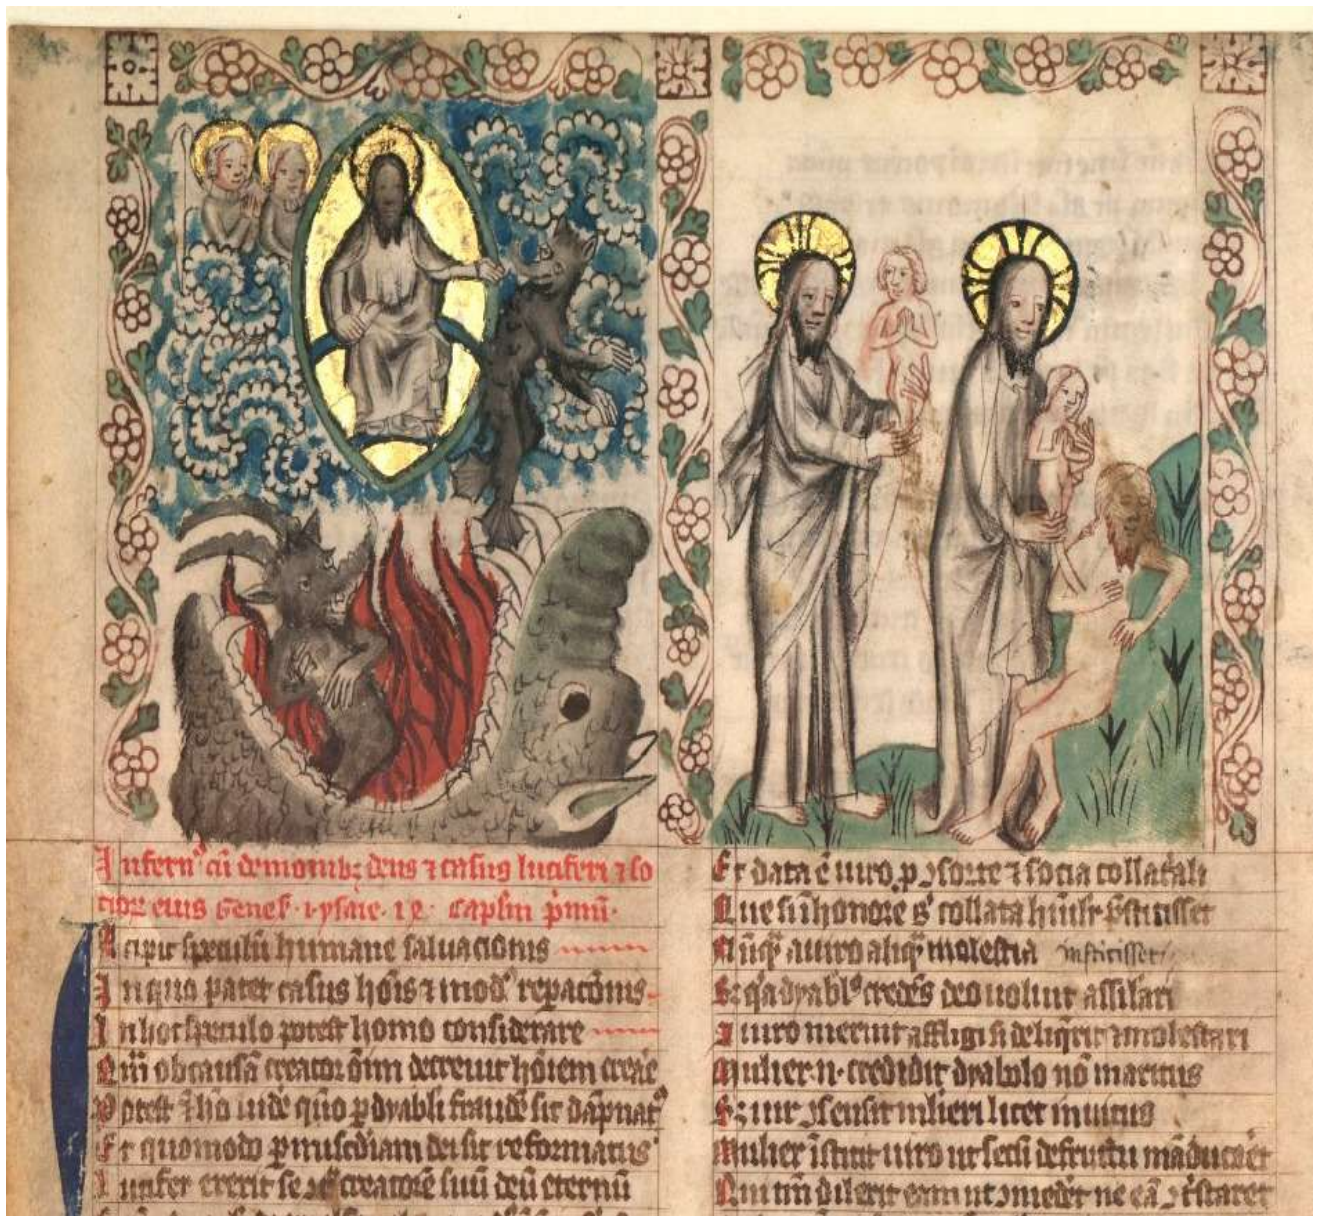 Infern⁹ cū demonibꝫ deus ⁊ casus luciferi ⁊ so
cioꝝ eius Genes̄ · i · ysaie · 12 · Caplm̄ p̄mū ·
Incipit speculū humane saluacionis
In quo patet casus hoīs ⁊ mod⁹ repacōnis
In hoc speculo potest homo considerare
Qm̄ ob causā creator om̄i decreuit hoīem creare
Potest ⁊ hō uidē quō p dyabli fraudē sit dāpnat⁹
Et quomodo p misc̄diam dei sit reformatus
Lucifer erexit se ꝯ creatorē suū deū eternū
Et data ē uiro p ꝯsorte ⁊ socia collat̄ali
Que si ī honore sibi collata hūilr̄ p̄stitisset
Nūqͣ a uiro aliqͣ molestia insticisset
Sꝫ qͣ dyablo credēs deo uoluit assilari
A uiro meruit affligi si deliq̄rit ⁊ molestari
Mulier n· credidit dyabolo nō maritus
Sꝫ uir ꝯsensit mlieri licet inuitus
Mulier īstitit uiro ut secū de fructu māducaret
Qui tm̄ dilexit eam ut ꝯmedet ne eā ꝯtristaret